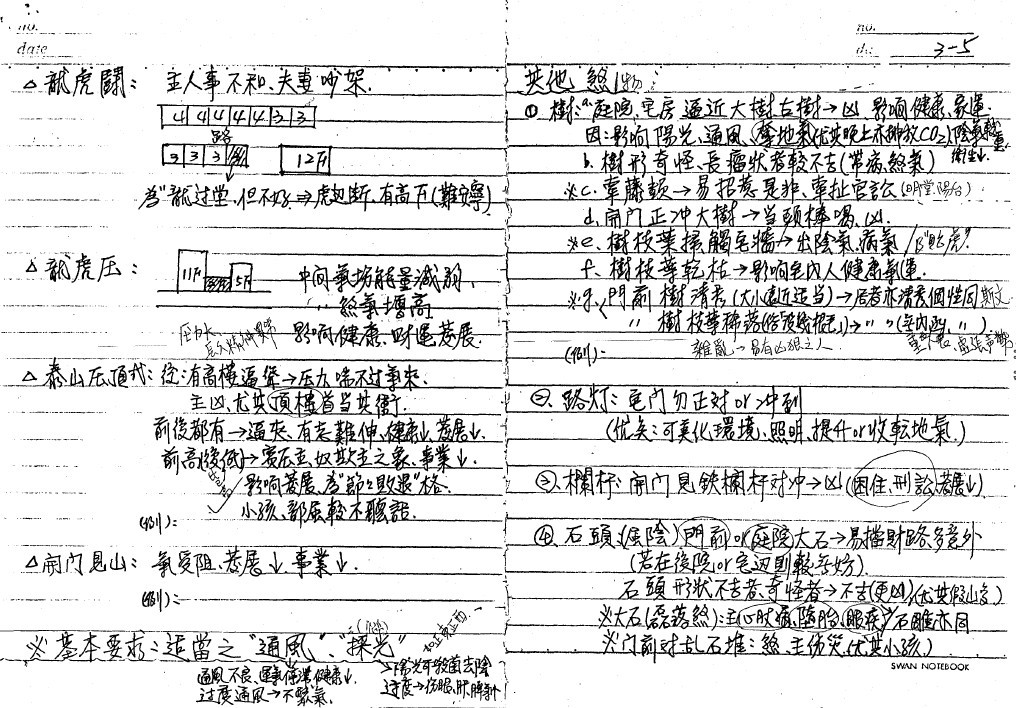 no.
date
△龍虎鬪：主人事不和、夫妻吵架.
4 4 4 4 4 3 3
路
3 3 3
12F
為"龍过堂,但不好⇒虎边断,有高下(難安寧)
△龍虎压：
11F
5F
中间氣場能量減弱,
〃 煞氣增高
影响健康、财運、發展.
△泰山压頂式：後:有高樓逼聳→压力喘不过氣來.
主凶,尤其頂樓首当其衝.
前後都有→逼夾、有志難伸、健康↓、發展↓.
前高後低→受压主、奴欺主之象、事業↓.
影响發展,為"節節敗退"格.
小孩、部屬較不聽話.
(例):
△開门見山：氣受阻、發展↓、事業↓.
(例):
※基本要求:适當之"通風"、"採光"
通風不良、運氣停滯健康↓.
过度通風→不聚氣.
陽光可殺菌去陰
过度→伤眼、
no.
3-5
其他煞物:
①樹:a.庭院、宅房逼近大樹古樹→凶 影响健康、家運.
因:影响陽光、通風、奪地氣(尤其晚上亦排放CO₂)陰氣較重
衛生↓.
b.樹形奇怪、長瘤状者較不吉(常病、煞氣)
※c.牽藤類→易招惹是非、牽扯官訟(明堂陽台)
d.開门正冲大樹→当頭棒喝、凶.
※e.樹枝葉掃觸宅牆→出陰氣、病氣/
f.樹枝葉乾枯→影响宅内人健康氣運.
※g.門前樹清秀(大小遠近适当)→居者亦清秀個性同斯文
〃 樹枝葉稀落
雜亂→易有凶狠之人
(例):
②路灯:宅门勿正对or冲到
(优矣:可美化環境、照明、提升or收転地氣.)
③欄杆:開门見鉄欄杆对冲→凶(困住、刑訟、發展↓)
④石頭:(屬陰)門前or庭院大石→易擋财路多意外
(若在後院or宅边則較無妨).
石頭形状不吉者、奇怪者→不吉(更凶)(尤其假山
※大石(磊落煞):主心肚痛、隨胎、眼疾/石雕亦同
※门前对乱石堆:煞、主伤災(尤其小孩).
SWAN NOTEBOOK